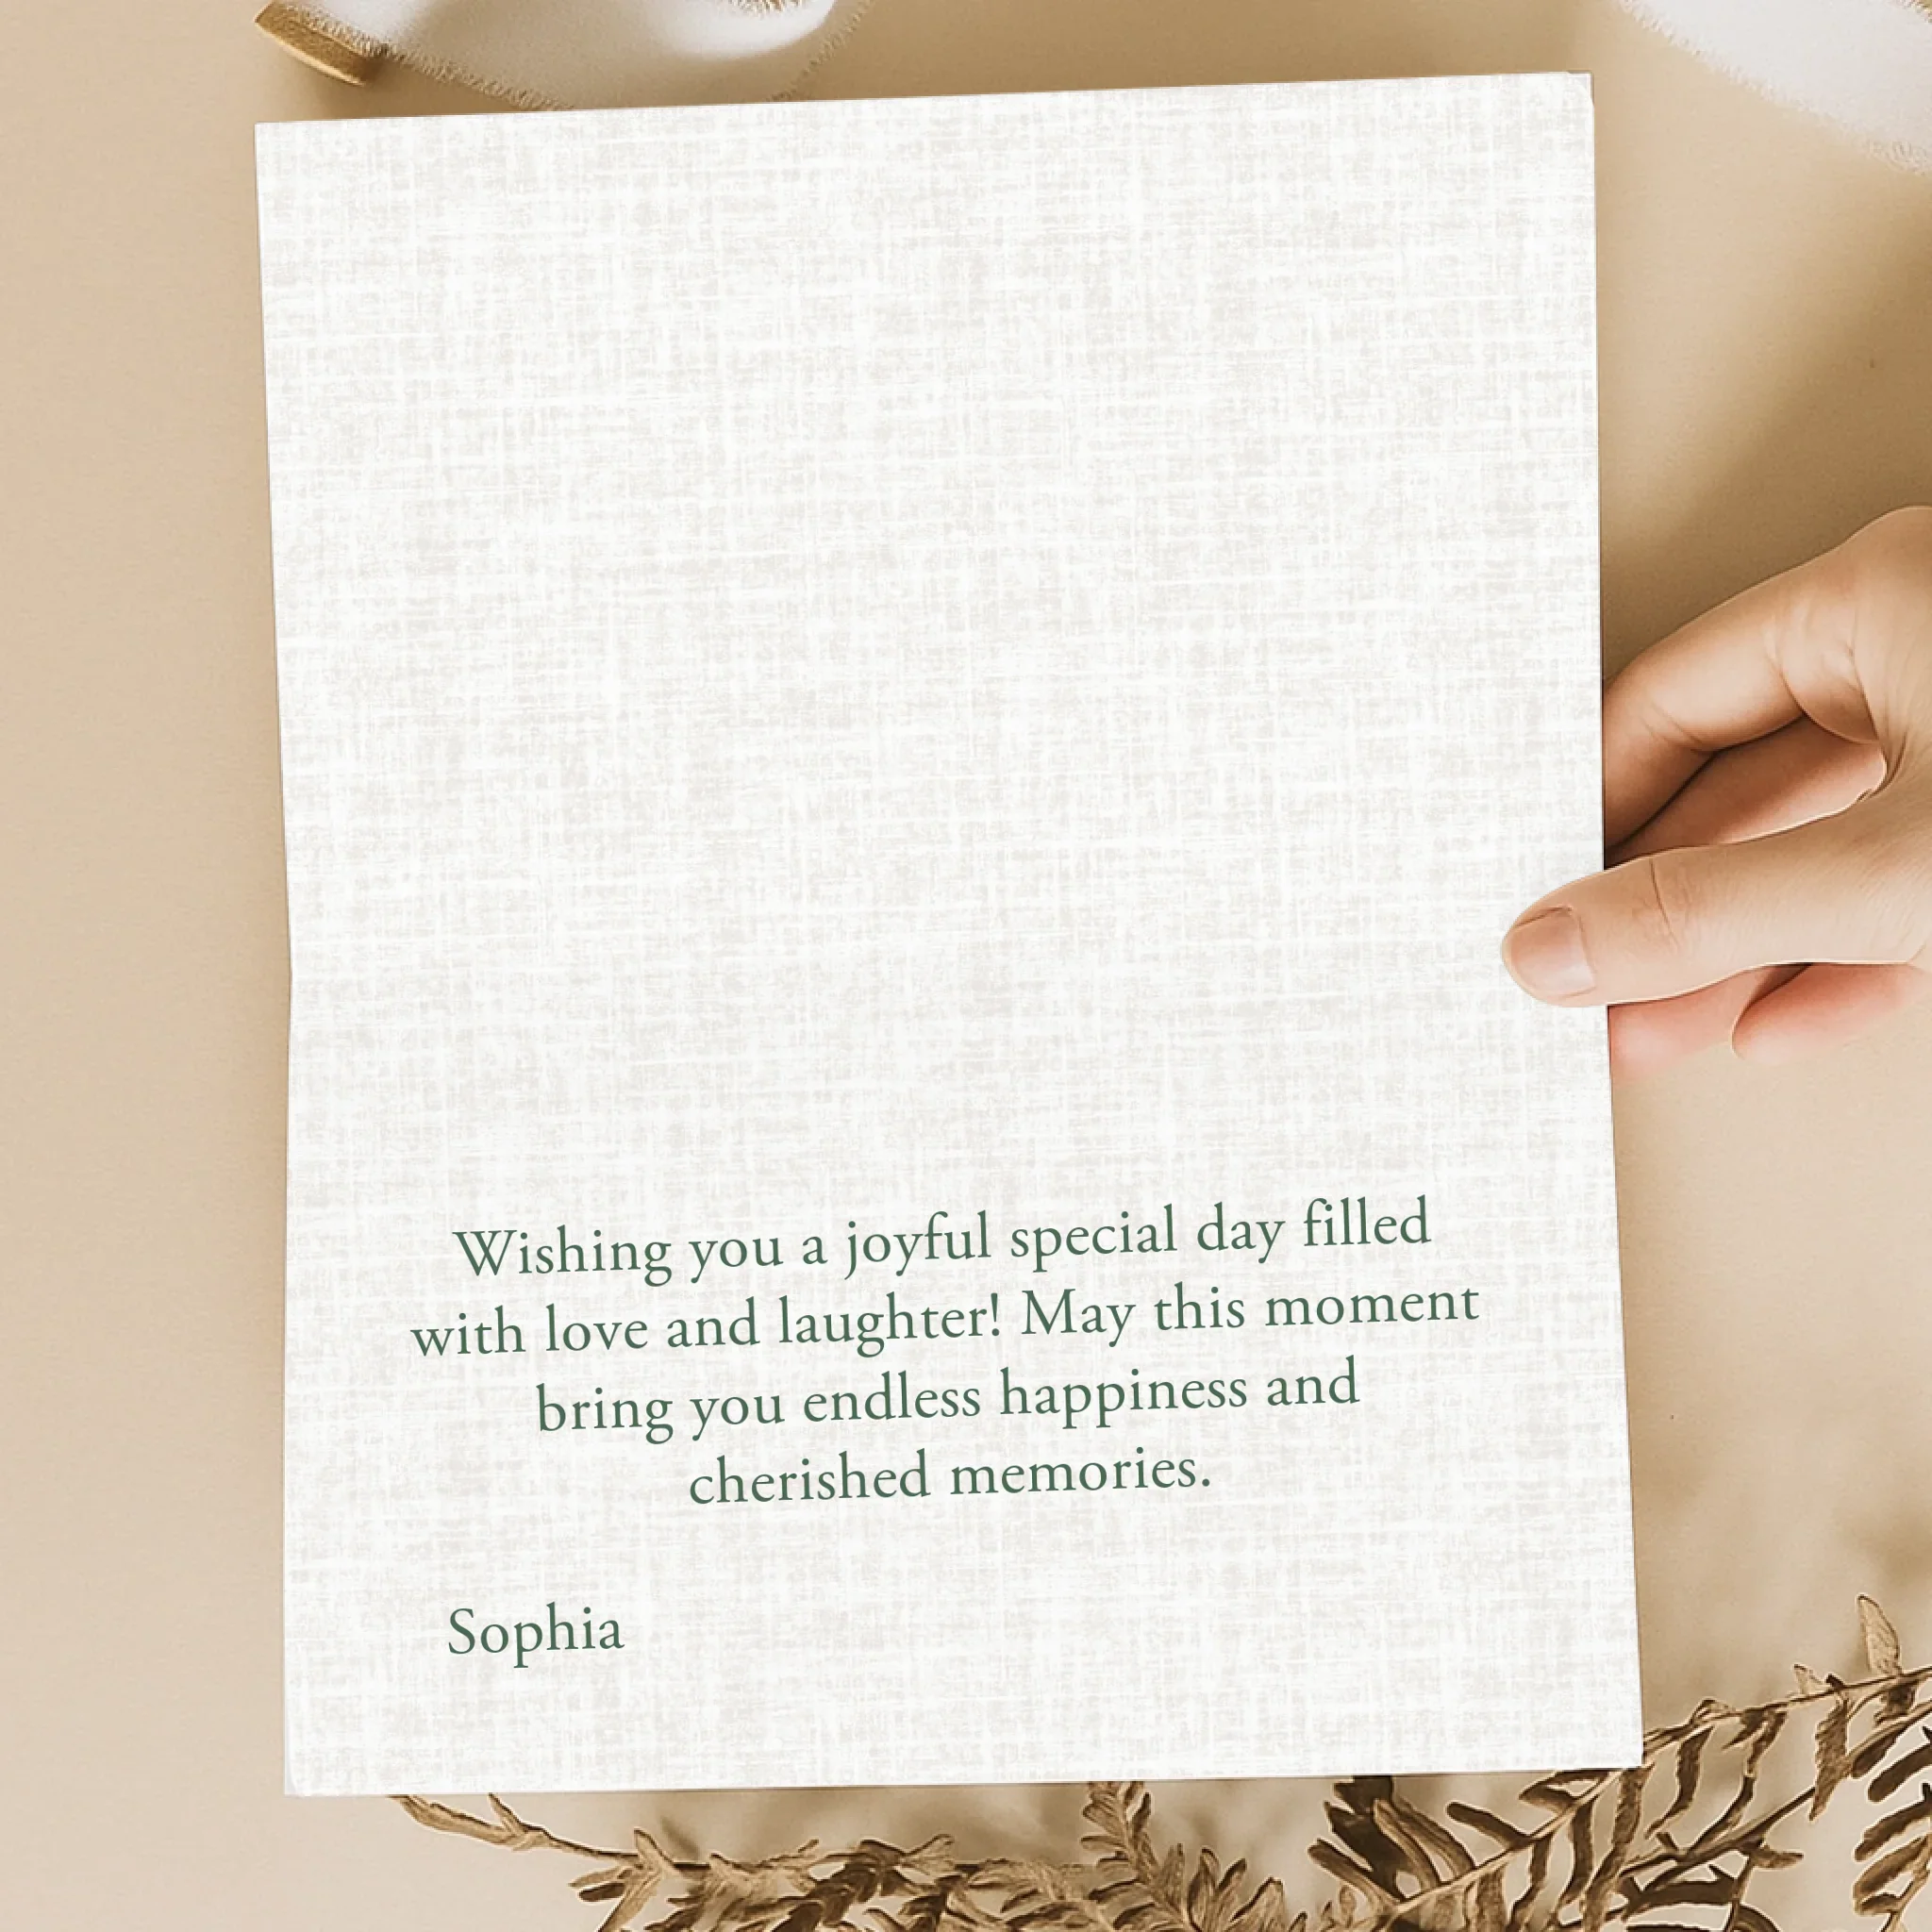 Wishing you a joyful special day filled
with love and laughter! May this moment
bring you endless happiness and
cherished memories.
Sophia